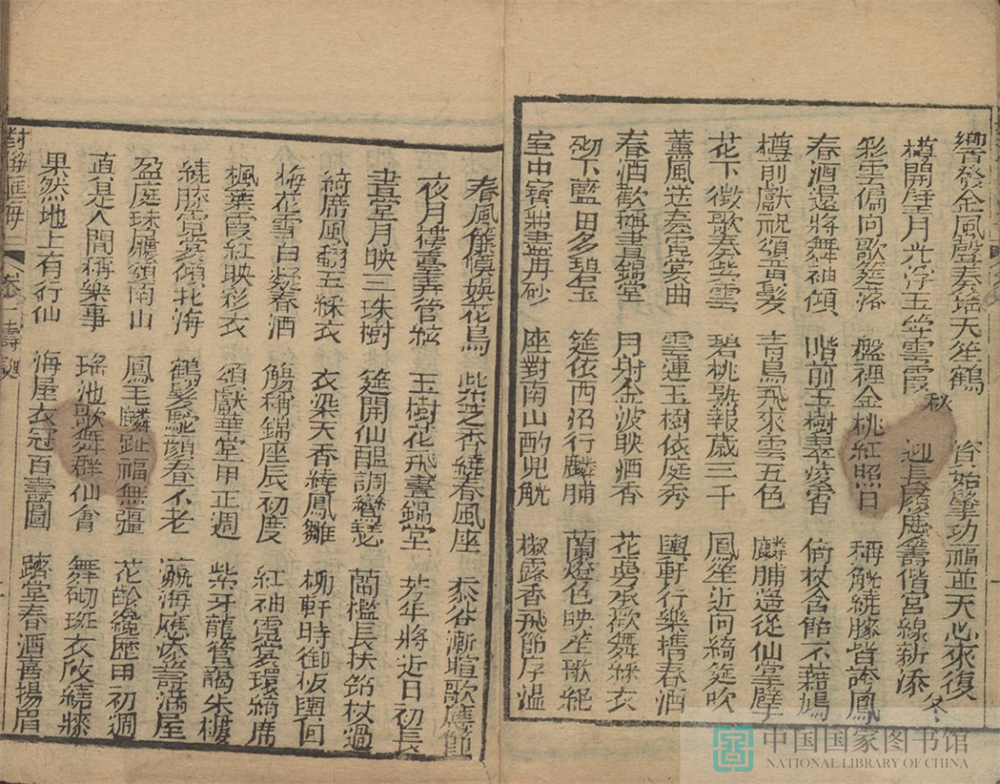 響發金風聲奏瑤天笙鶴 秋 資始肇功福並天心來復
樽開璧月光浮玉竺雲霞 迎長履慶籌偕宮線新添 冬
彩雲偏向歌筵落 盤裡金桃紅照日 稱觥繞膝皆誇鳳
春酒還將舞袖傾 階前玉樹翠凌霄 倚杖含飴不藉鳩
樽前獻祝頌黃髮 青鳥飛來雲五色 麟脯遙從仙掌擘
花下徵歌奏紫雲 碧桃熟報歲三千 鳳笙近向綺筵吹
薰風送奏霓裳曲 雲連玉樹依庭秀 輿軒行樂攜春酒
春酒歡稱晝錦堂 月射金波映酒香 花萼承歡舞綵衣
砌下藍田多碧玉 筵依西沼行麟脯 蘭燈色映坐
室中寶鼎盡丹砂 座對南山酌兕觥 椒露香飛節序溫
春風簾幙娛花鳥 紫芝香繞春風座 黍谷漸暄歌應節
夜月樓臺弄管絃 玉樹花飛晝錦堂 芳年將近日初長
晝堂月映三珠樹 筵開仙醞調 瑟 蘭檻長扶飴杖過
綺席風翻五綵衣 衣染天香繞鳳雛 軒時御板輿回
梅花雪白凝春酒 觴稱錦座辰初度 紅袖霓裳環綺席
楓葉霞紅映彩衣 頌獻華堂甲正週 紫牙龍管謁朱樓
繞膝霓裳傾北海 鶴髮駝顏春不老 海應 壽滿屋
盈庭珠履頌南山 鳳毛麟趾福無疆 花 歷甲初週
直是人間稱樂事 瑤池歌舞群仙會 舞砌斑衣欣繞膝
果然地上有行仙 海屋衣冠百壽圖 躋堂春酒喜揚眉
對聯匯海 卷 壽
中国国家图书馆
NATIONAL LIBRARY OF CHINA